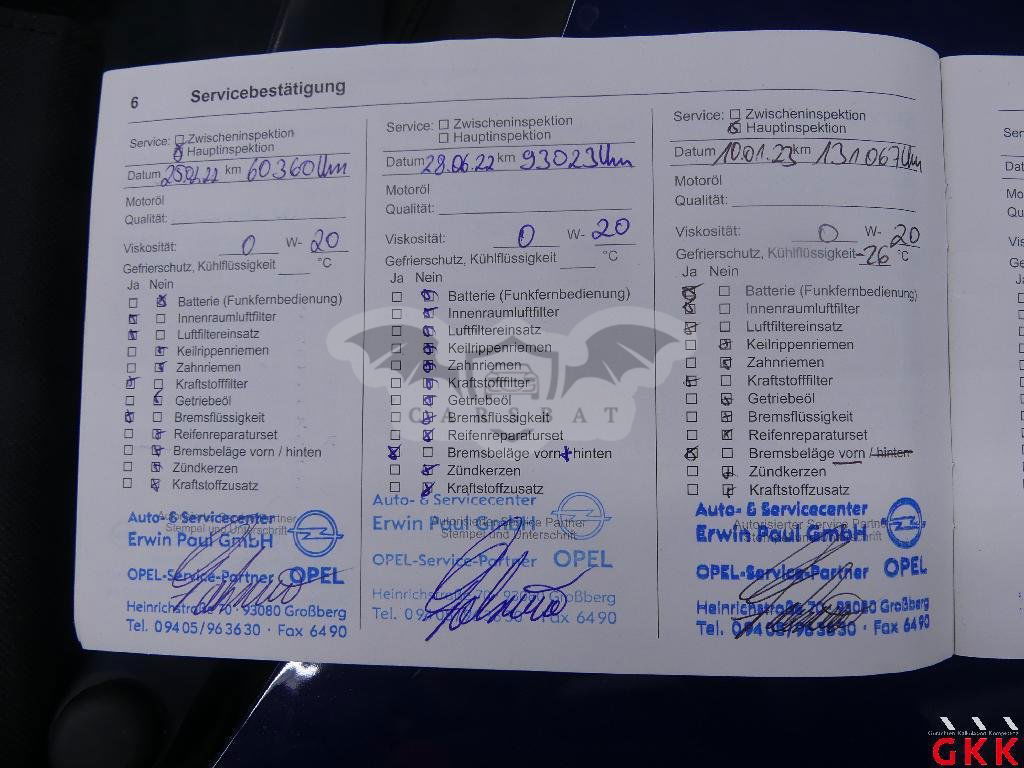 6 Servicebestätigung
Service: Zwischeninspektion
Hauptinspektion
Datum km 60360Km
Motoröl
Qualität:
Viskosität: 0 W- 20
Gefrierschutz, Kühlflüssigkeit °C
Ja Nein
Batterie (Funkfernbedienung)
Innenraumluftfilter
Luftfiltereinsatz
Keilrippenriemen
Zahnriemen
Kraftstofffilter
Getriebeöl
Bremsflüssigkeit
Reifenreparaturset
Bremsbeläge vorn / hinten
Zündkerzen
Kraftstoffzusatz
Autorisierter Service Partner
Stempel und Unterschrift
Auto- & Servicecenter
Erwin Paul GmbH
OPEL-Service-Partner OPEL
Heinrichstraße 70 · 93080 Großberg
Tel. 09405/963630 · Fax 6490
Service: Zwischeninspektion
Hauptinspektion
Datum 28.06.22 km 93023Km
Motoröl
Qualität:
Viskosität: 0 W- 20
Gefrierschutz, Kühlflüssigkeit °C
Ja Nein
Batterie (Funkfernbedienung)
Innenraumluftfilter
Luftfiltereinsatz
Keilrippenriemen
Zahnriemen
Kraftstofffilter
Getriebeöl
Bremsflüssigkeit
Reifenreparaturset
Bremsbeläge vorn + hinten
Zündkerzen
Kraftstoffzusatz
Auto- & Servicecenter
Erwin Paul GmbH
Autorisierter Service Partner
Stempel und Unterschrift
OPEL-Service-Partner OPEL
Heinrichstraße 70 · 93080 Großberg
Tel. 09405/963630 · Fax 6490
Service: Zwischeninspektion
Hauptinspektion
Datum 10.01.23 km 131067Km
Motoröl
Qualität:
Viskosität: 0 W- 20
Gefrierschutz, Kühlflüssigkeit -26 °C
Ja Nein
Batterie (Funkfernbedienung)
Innenraumluftfilter
Luftfiltereinsatz
Keilrippenriemen
Zahnriemen
Kraftstofffilter
Getriebeöl
Bremsflüssigkeit
Reifenreparaturset
Bremsbeläge vorn / hinten
Zündkerzen
Kraftstoffzusatz
Auto- & Servicecenter
Erwin Paul GmbH
Autorisierter Service Partner
OPEL-Service-Partner OPEL
Heinrichstraße 70 · 93080 Großberg
Tel. 09405/963630 · Fax 6490
CARSBAT
Gutachten Kalkulation Kompetenz
GKK